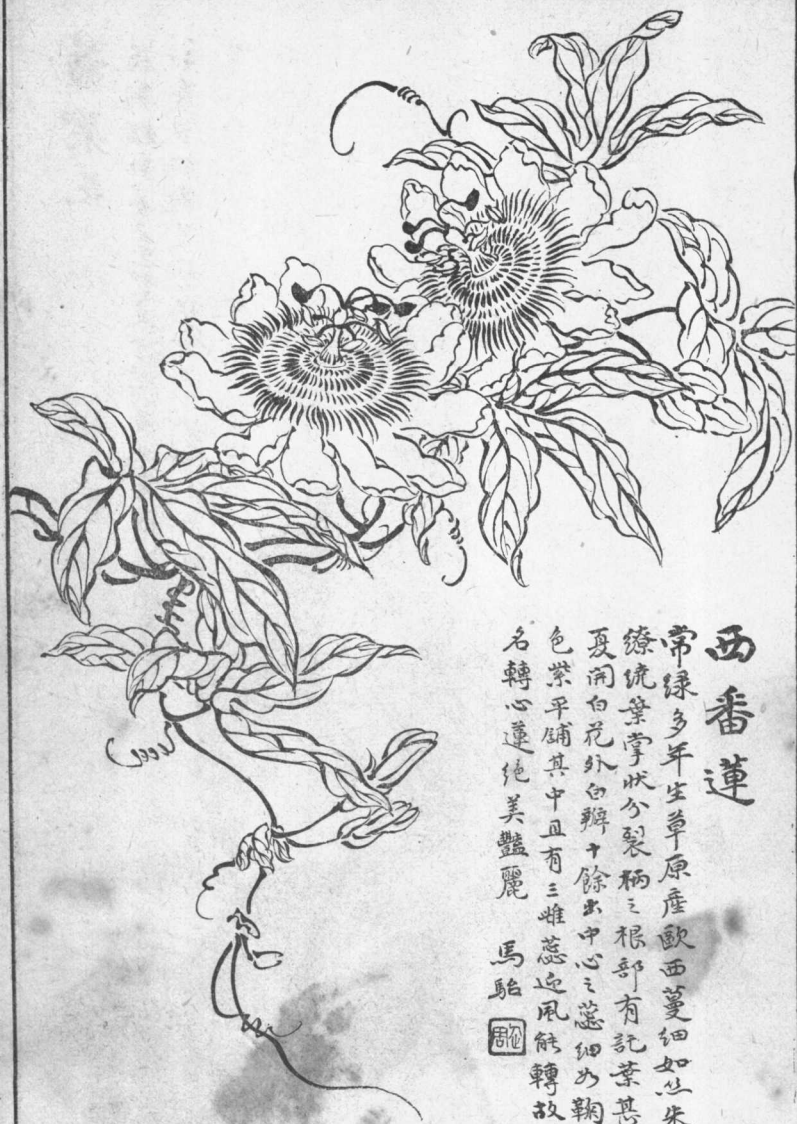 西番蓮
常緑多年生草原產歐西蔓細如絲朱
繚繞葉掌狀分裂柄之根部有託葉甚
夏開白花外白瓣十餘出中心之蕊細如鞠
色紫平鋪其中且有三雌蕊迎風能轉故
名轉心蓮絕美豔麗 馬駘